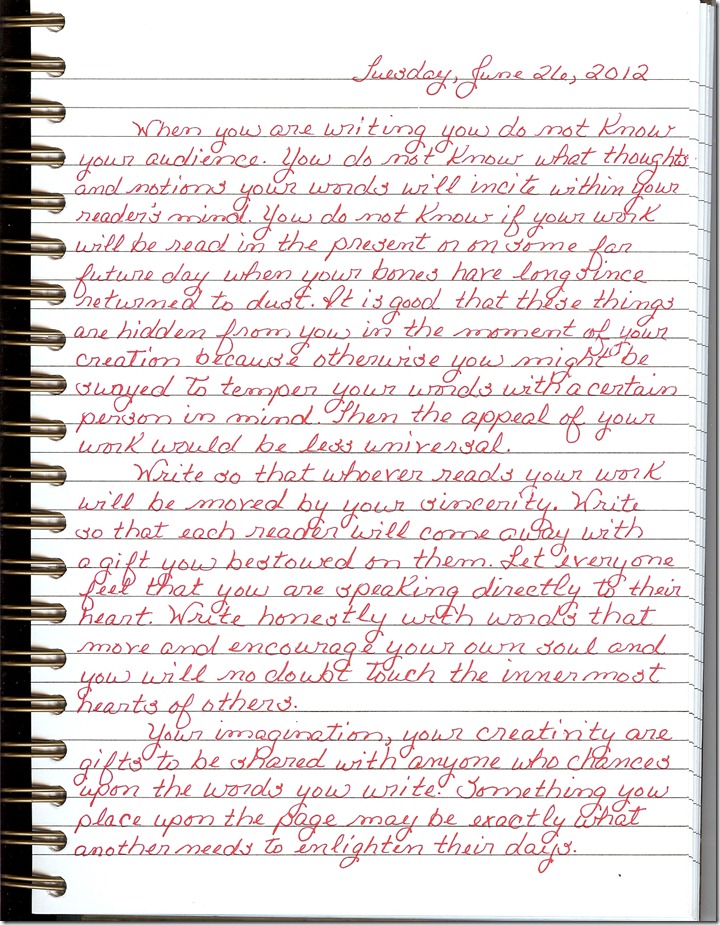 Tuesday, June 26, 2012
When you are writing you do not know
your audience. You do not know what thoughts
and notions your words will incite within your
reader's mind. You do not know if your work
will be read in the present or on some far
future day when your bones have long since
returned to dust. It is good that these things
are hidden from you in the moment of your
creation because otherwise you might be
swayed to temper your words with a certain
person in mind. Then the appeal of your
work would be less universal.
Write so that whoever reads your work
will be moved by your sincerity. Write
so that each reader will come away with
a gift you bestowed on them. Let everyone
feel that you are speaking directly to their
heart. Write honestly with words that
move and encourage your own soul and
you will no doubt touch the innermost
hearts of others.
Your imagination, your creativity are
gifts to be shared with anyone who chances
upon the words you write. Something you
place upon the page may be exactly what
another needs to enlighten their days.